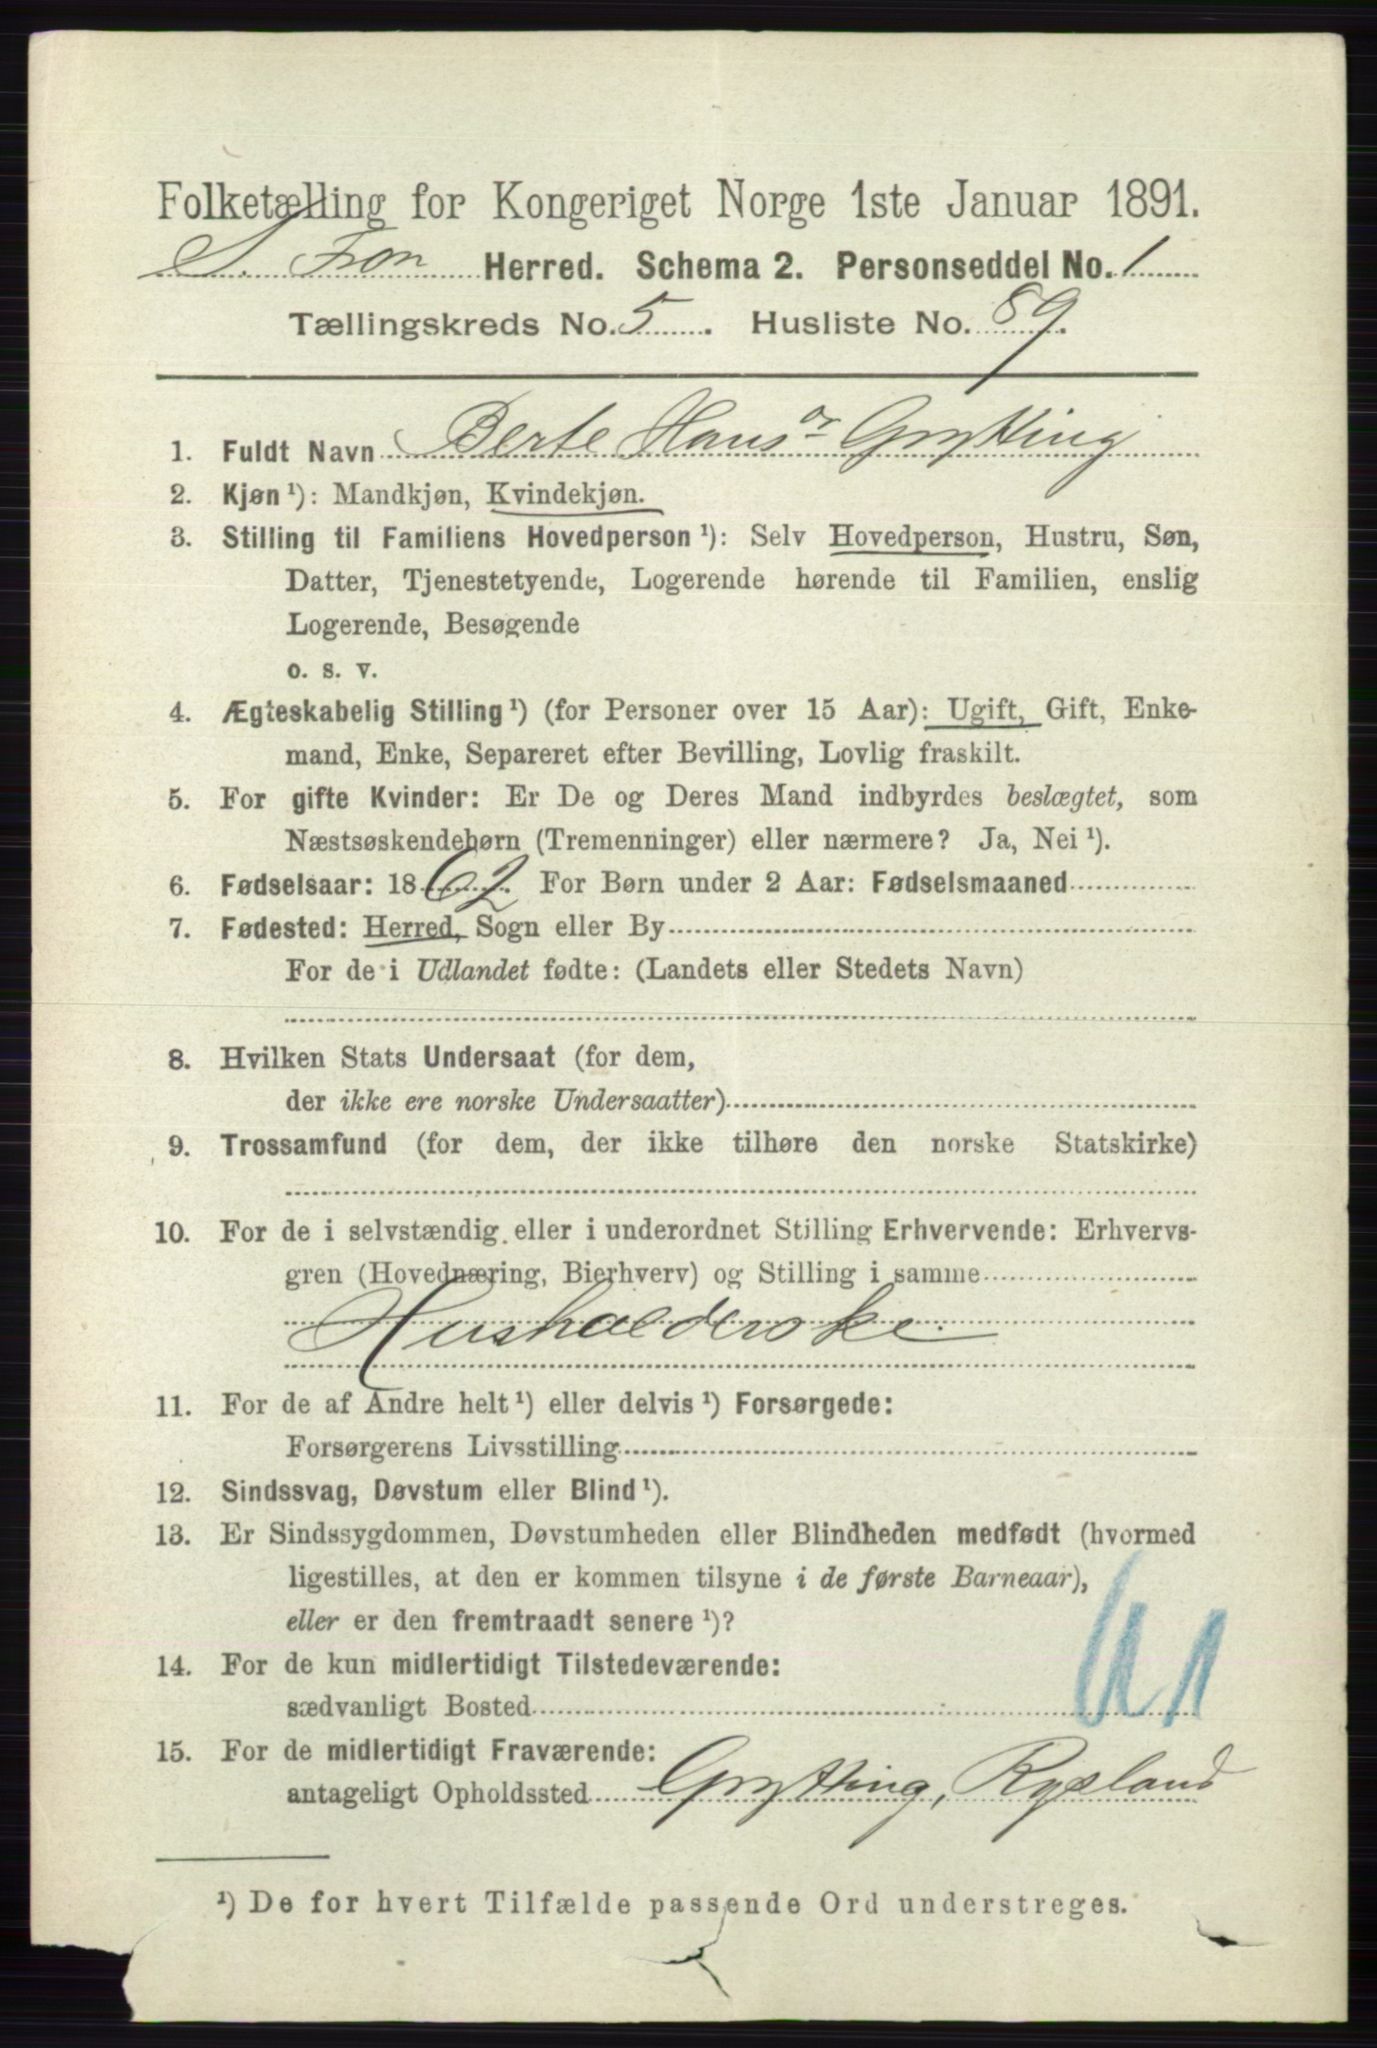 Folketælling for Kongeriget Norge 1ste Januar 1891.
S. Fron Herred. Schema 2. Personseddel No. 1
Tællingskreds No. 5. Husliste No. 89.
1. Fuldt Navn Berte Hansdr Grytting
2. Kjøn ¹): Mandkjøn, Kvindekjøn.
3. Stilling til Familiens Hovedperson ¹): Selv Hovedperson, Hustru, Søn,
Datter, Tjenestetyende, Logerende hørende til Familien, enslig
Logerende, Besøgende
o. s. v.
4. Ægteskabelig Stilling ¹) (for Personer over 15 Aar): Ugift, Gift, Enke-
mand, Enke, Separeret efter Bevilling, Lovlig fraskilt.
5. For gifte Kvinder: Er De og Deres Mand indbyrdes beslægtet, som
Næstsøskendebørn (Tremenninger) eller nærmere? Ja, Nei ¹).
6. Fødselsaar: 1862. For Børn under 2 Aar: Fødselsmaaned
7. Fødested: Herred, Sogn eller By
For de i Udlandet fødte: (Landets eller Stedets Navn)
8. Hvilken Stats Undersaat (for dem,
der ikke ere norske Undersaatter)
9. Trossamfund (for dem, der ikke tilhøre den norske Statskirke)
10. For de i selvstændig eller i underordnet Stilling Erhvervende: Erhvervs-
gren (Hovednæring, Bierhverv) og Stilling i samme
Husholderske.
11. For de af Andre helt ¹) eller delvis ¹) Forsørgede:
Forsørgerens Livsstilling
12. Sindssvag, Døvstum eller Blind ¹).
13. Er Sindssygdommen, Døvstumheden eller Blindheden medfødt (hvormed
ligestilles, at den er kommen tilsyne i de første Barneaar),
eller er den fremtraadt senere ¹)?
14. For de kun midlertidigt Tilstedeværende:
sædvanligt Bosted
15. For de midlertidigt Fraværende:
antageligt Opholdssted Grytting,
¹) De for hvert Tilfælde passende Ord understreges.